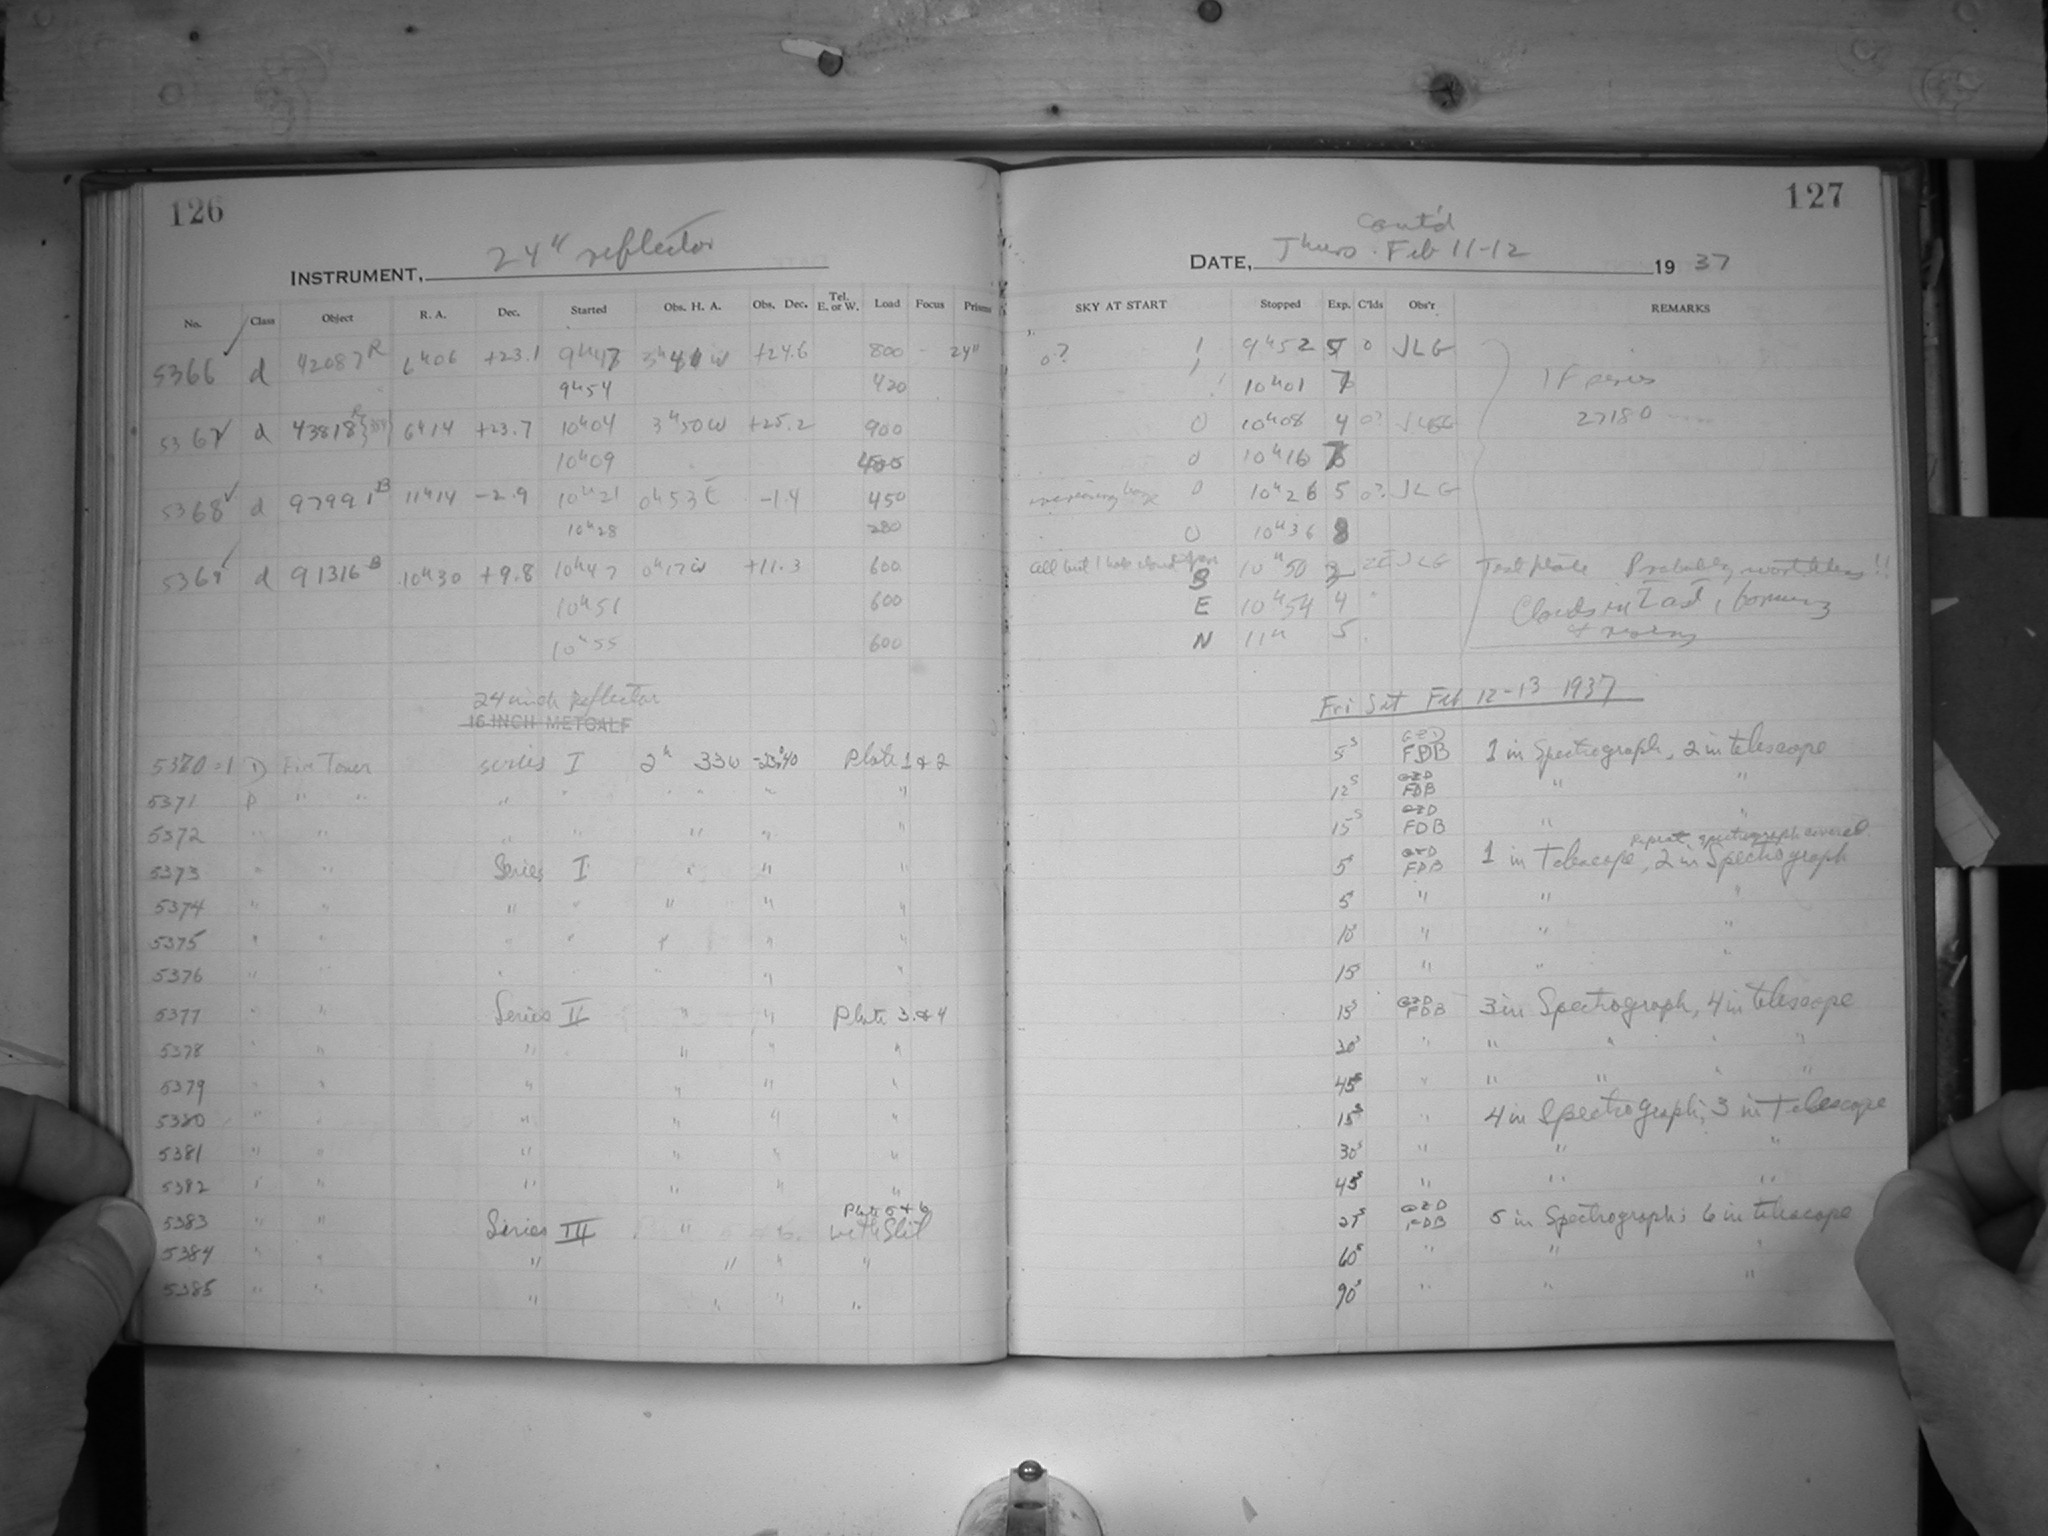 126
INSTRUMENT, 24" reflector
No. Class Object R. A. Dec. Started Obs. H. A. Obs. Dec. Tel. E. or W. Load Focus Prisms
5366 ✓ d 42087 R 6h06 +23.1 9h47 w +24.6 800 - 24"
9h54 420
5367 ✓ d 43818 R 6h14 +23.7 10h04 3h50w +25.2 900
10h09
5368 ✓ d 97991 B 11h14 -2.9 10h21 0h53E -1.4 450
10h28 280
5369 ✓ d 91316 B 10h30 +9.8 10h47 0h17w +11.3 600
10h51 600
10h55 600
24 inch Reflector
16 INCH METCALF
5370 D Fire Tower series I 2h 33w Plate 1 & 2
5371 D " " " " " " " "
5372 " " " " " " "
5373 " " Series I " " "
5374 " " " " " " "
5375 " " " " " " "
5376 " " " " " " "
5377 " " Series II " " Plate 3 & 4
5378 " " " " " "
5379 " " " " " "
5380 " " " " " "
5381 " " " " " "
5382 " " " " " "
5383 " " Series III " Plate 5 & 6 with Slit
5384 " " " " " "
5385 " " " " " "
127
Cont'd
DATE, Thurs. Feb 11-12 1937
SKY AT START Stopped Exp. C'lds Obs'r REMARKS
0? 1 9h52 5 0 JLG
1 10h01 7 1F series
0 10h08 4 0? JLG 27180
0 10h16
increasing haze 0 10h26 5 0? JLG
0 10h36 8
all but 1 hole clouded S 10h50 JLG Test plate Probably worthless!!
E 10h54 4 " Clouds in East, forming
N 11h 5 & rising
Fri Sat Feb 12-13 1937
5s GZD FDB 1 in Spectrograph, 2 in telescope
12s GZD FDB " "
15s GZD FDB " "
Repeat. Spectrograph covered
5s GZD FDB 1 in Telescope, 2 in Spectrograph
5s " " "
10s " " "
15s " " "
15s GZD FDB 3 in Spectrograph, 4 in telescope
30s " " " " "
45s " " " " "
15s " 4 in Spectrograph; 3 in Telescope
30s " " "
45s " " "
GZD FDB 5 in Spectrograph; 6 in telescope
60s " " "
90s " " "